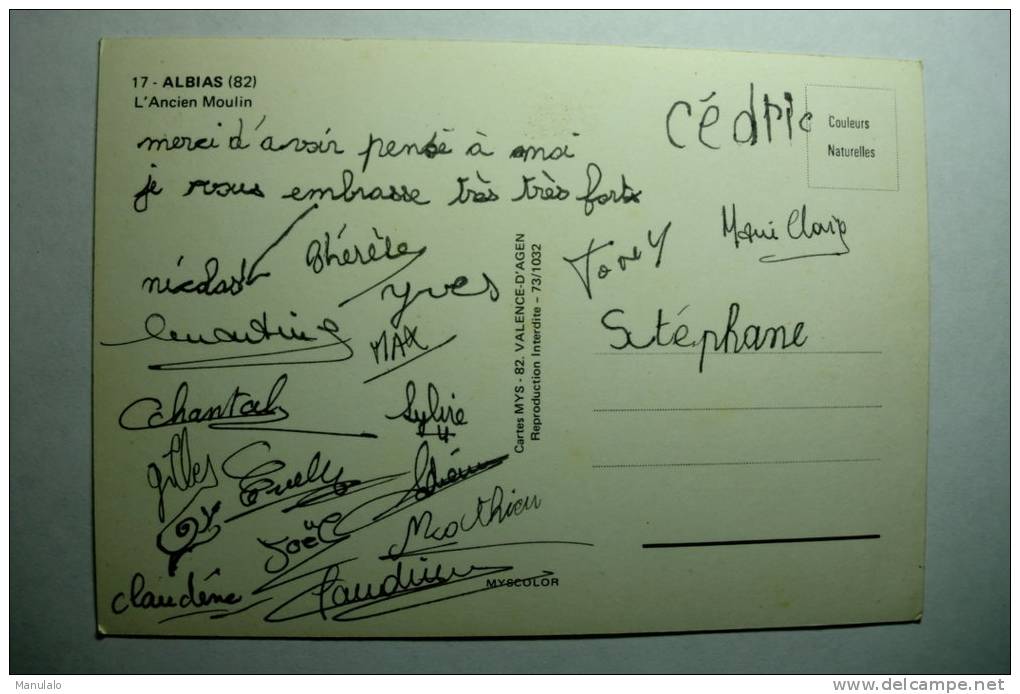 17 - ALBIAS (82)
L'Ancien Moulin
merci d'avoir pensé à moi
je vous embrasse très très fort
Cédric
Couleurs
Naturelles
nicolas
thérèse
yves
Marie Claire
Stéphane
MAX
Chantal
Sylvie
gilles
Evelyne
Joël
Mathieu
claudine
Cartes MYS - 82. VALENCE-D'AGEN
Reproduction Interdite - 73/1032
MYSCOLOR
Manulalo
www.delcampe.net